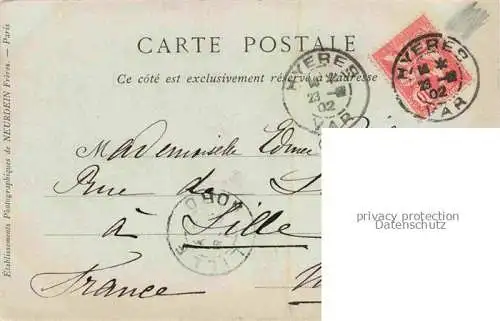 CARTE POSTALE
Ce côté est exclusivement réservé à l'adresse
HYERES
23
02
VAR
HYERES
23
02
VAR
Mademoiselle
Rue de
à Lille
France
LILLE
NORD
privacy protection
Datenschutz
Établissements Photographiques de NEURDEIN Frères. — Paris